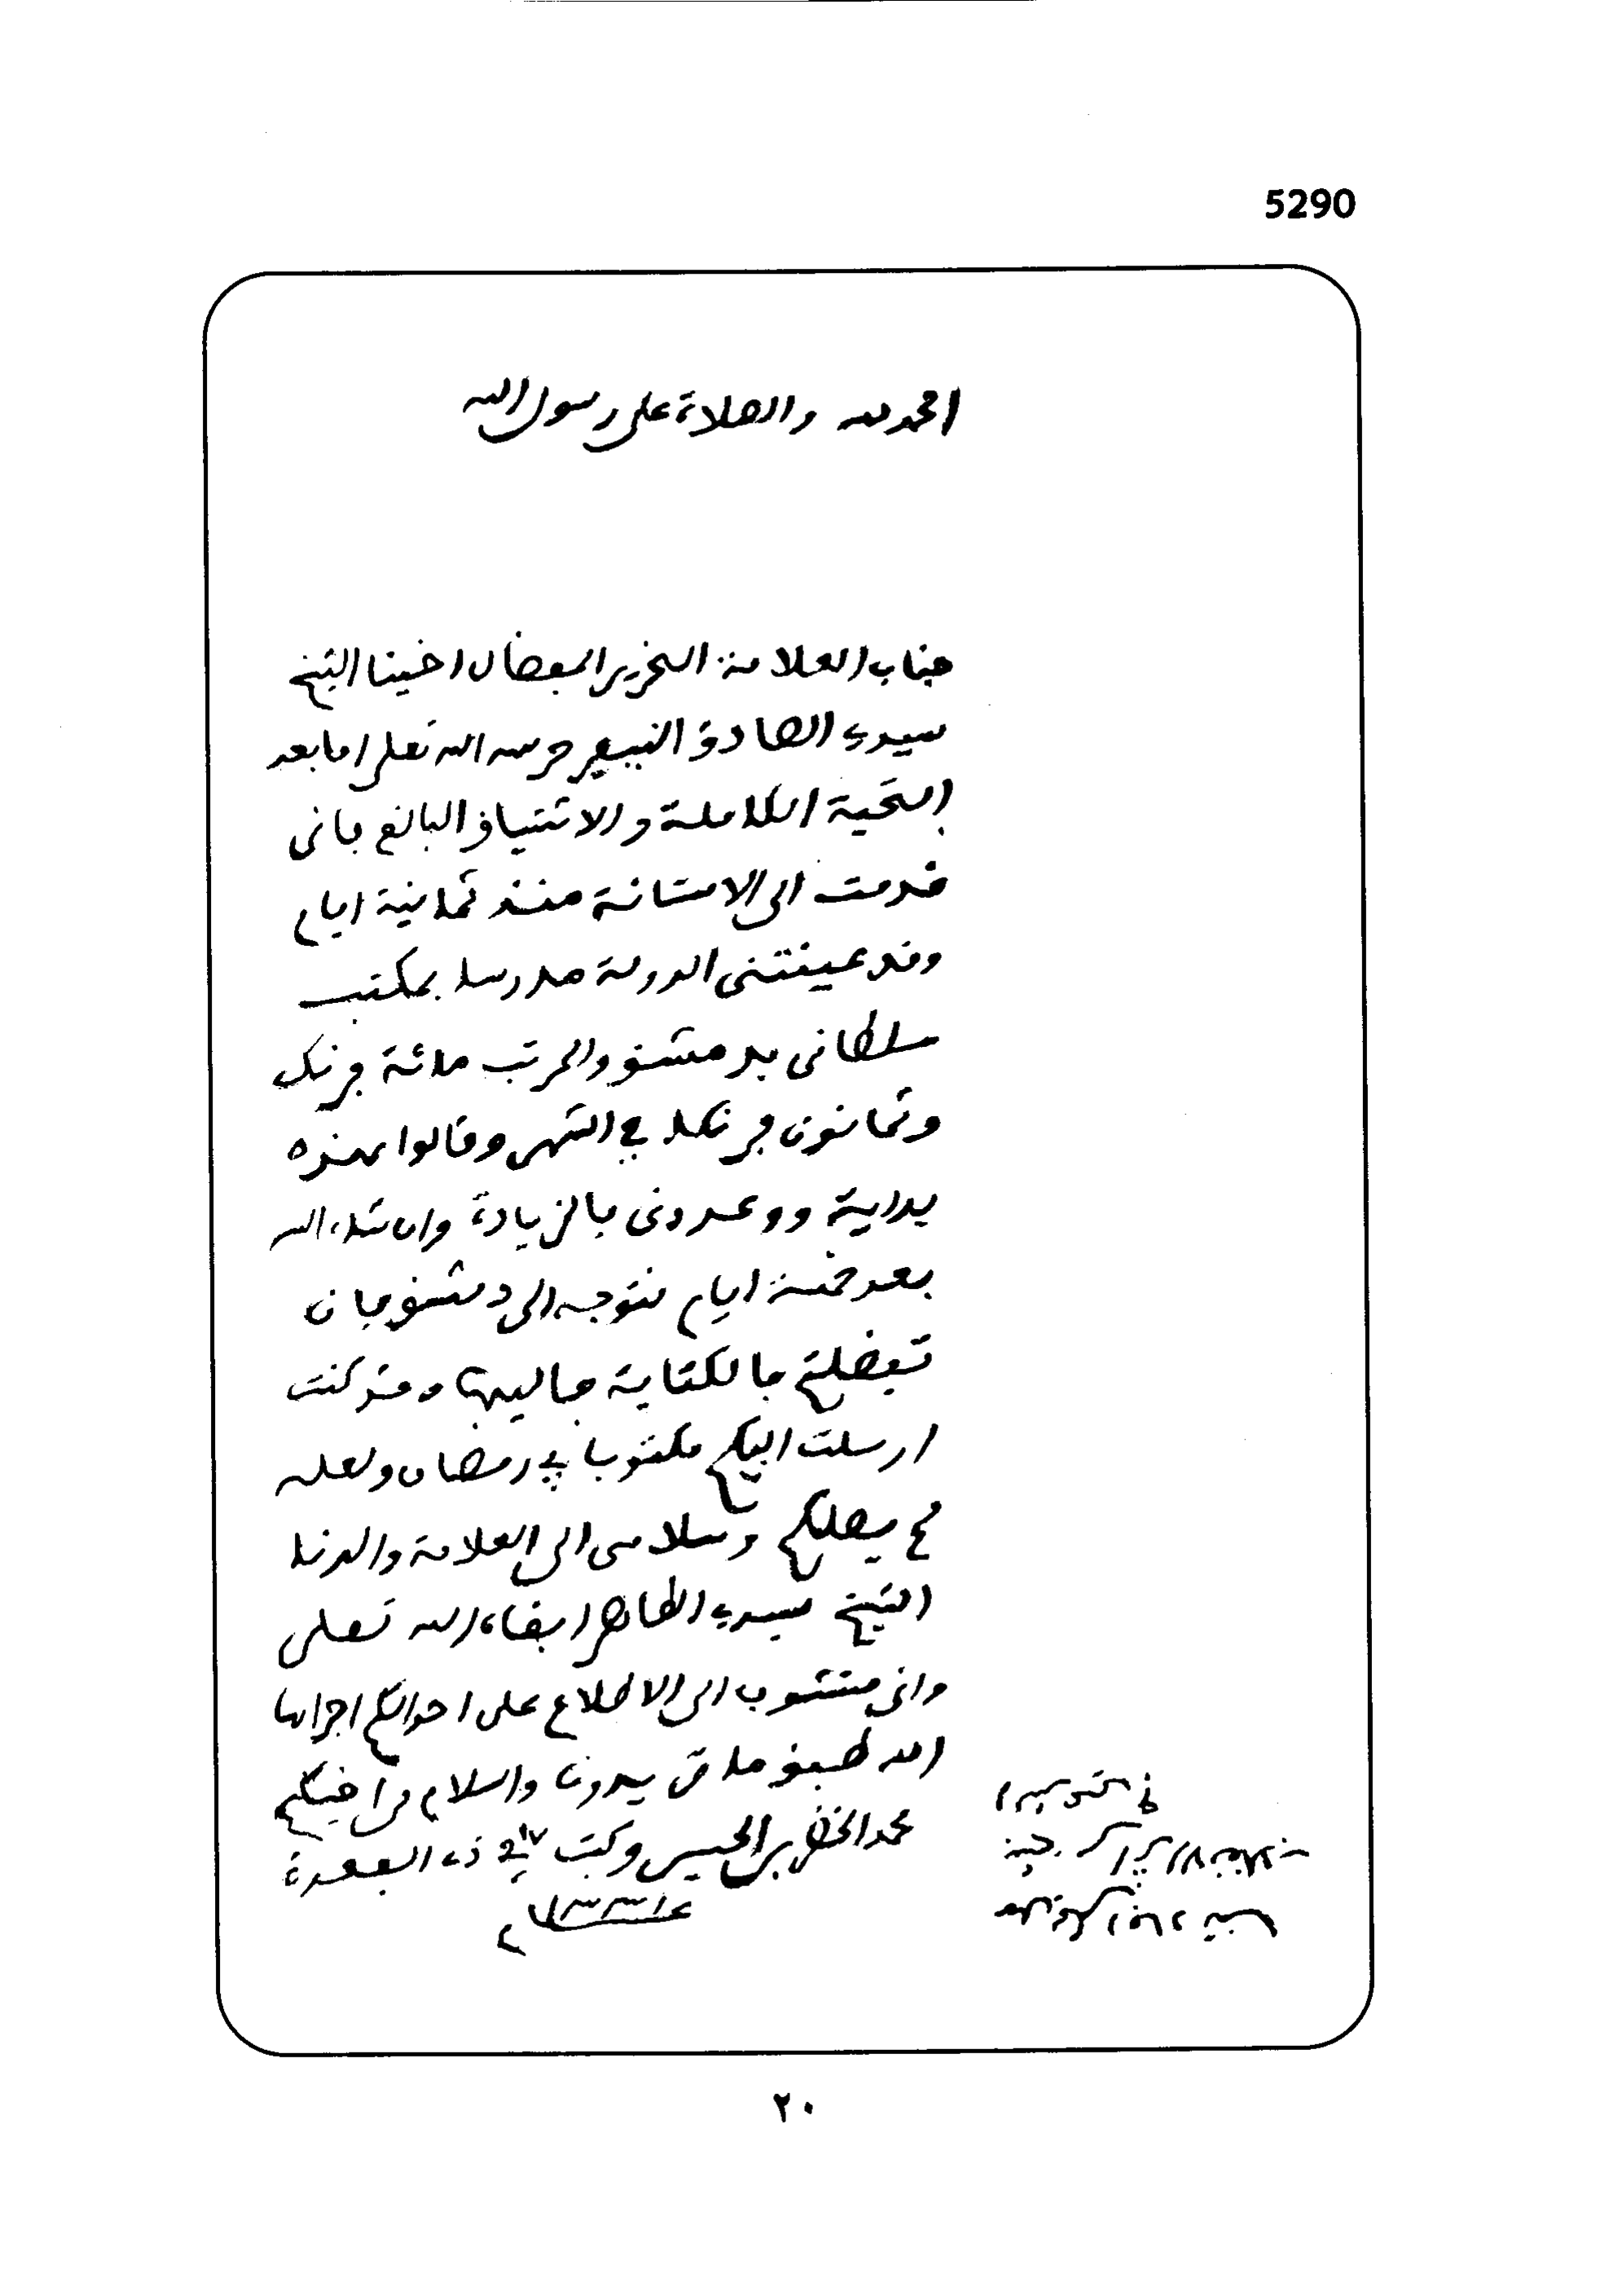 5290
الحمد لله والصلاة على رسول الله
جناب العلامة النحرير المفضال اخينا الشيخ
سيدي الصادق النيفر حرسه الله تعلى اما بعد
التحية الكاملة والاشتياق البالغ فاني
قدمت الى الاستانة منذ ثمانية ايام
وقد عينتني الدولة مدرسا بمكتب
سلطاني بدمشق والمرتب مائة فرنك
وثمانون فرنكا في الشهر وقالوا هذه
بداية ووعدوني بالزيادة وان شاء الله
بعد خمسة ايام نتوجه الى دمشق فان
تفضلتم بالكتابة فاليها وقد كنت
ارسلت اليكم مكتوبا في رمضان ولعله
لم يصلكم وسلامي الى العلامة والدنا
الشيخ سيدي الطاهر ابقاه الله تعلى
واني متشوف الى الاطلاع على احوالكم اجراها
الله طبق ما تريدون والسلام من اخيكم
محمد الخضر بن الحسين وكتب في ذي القعدة
٢٠